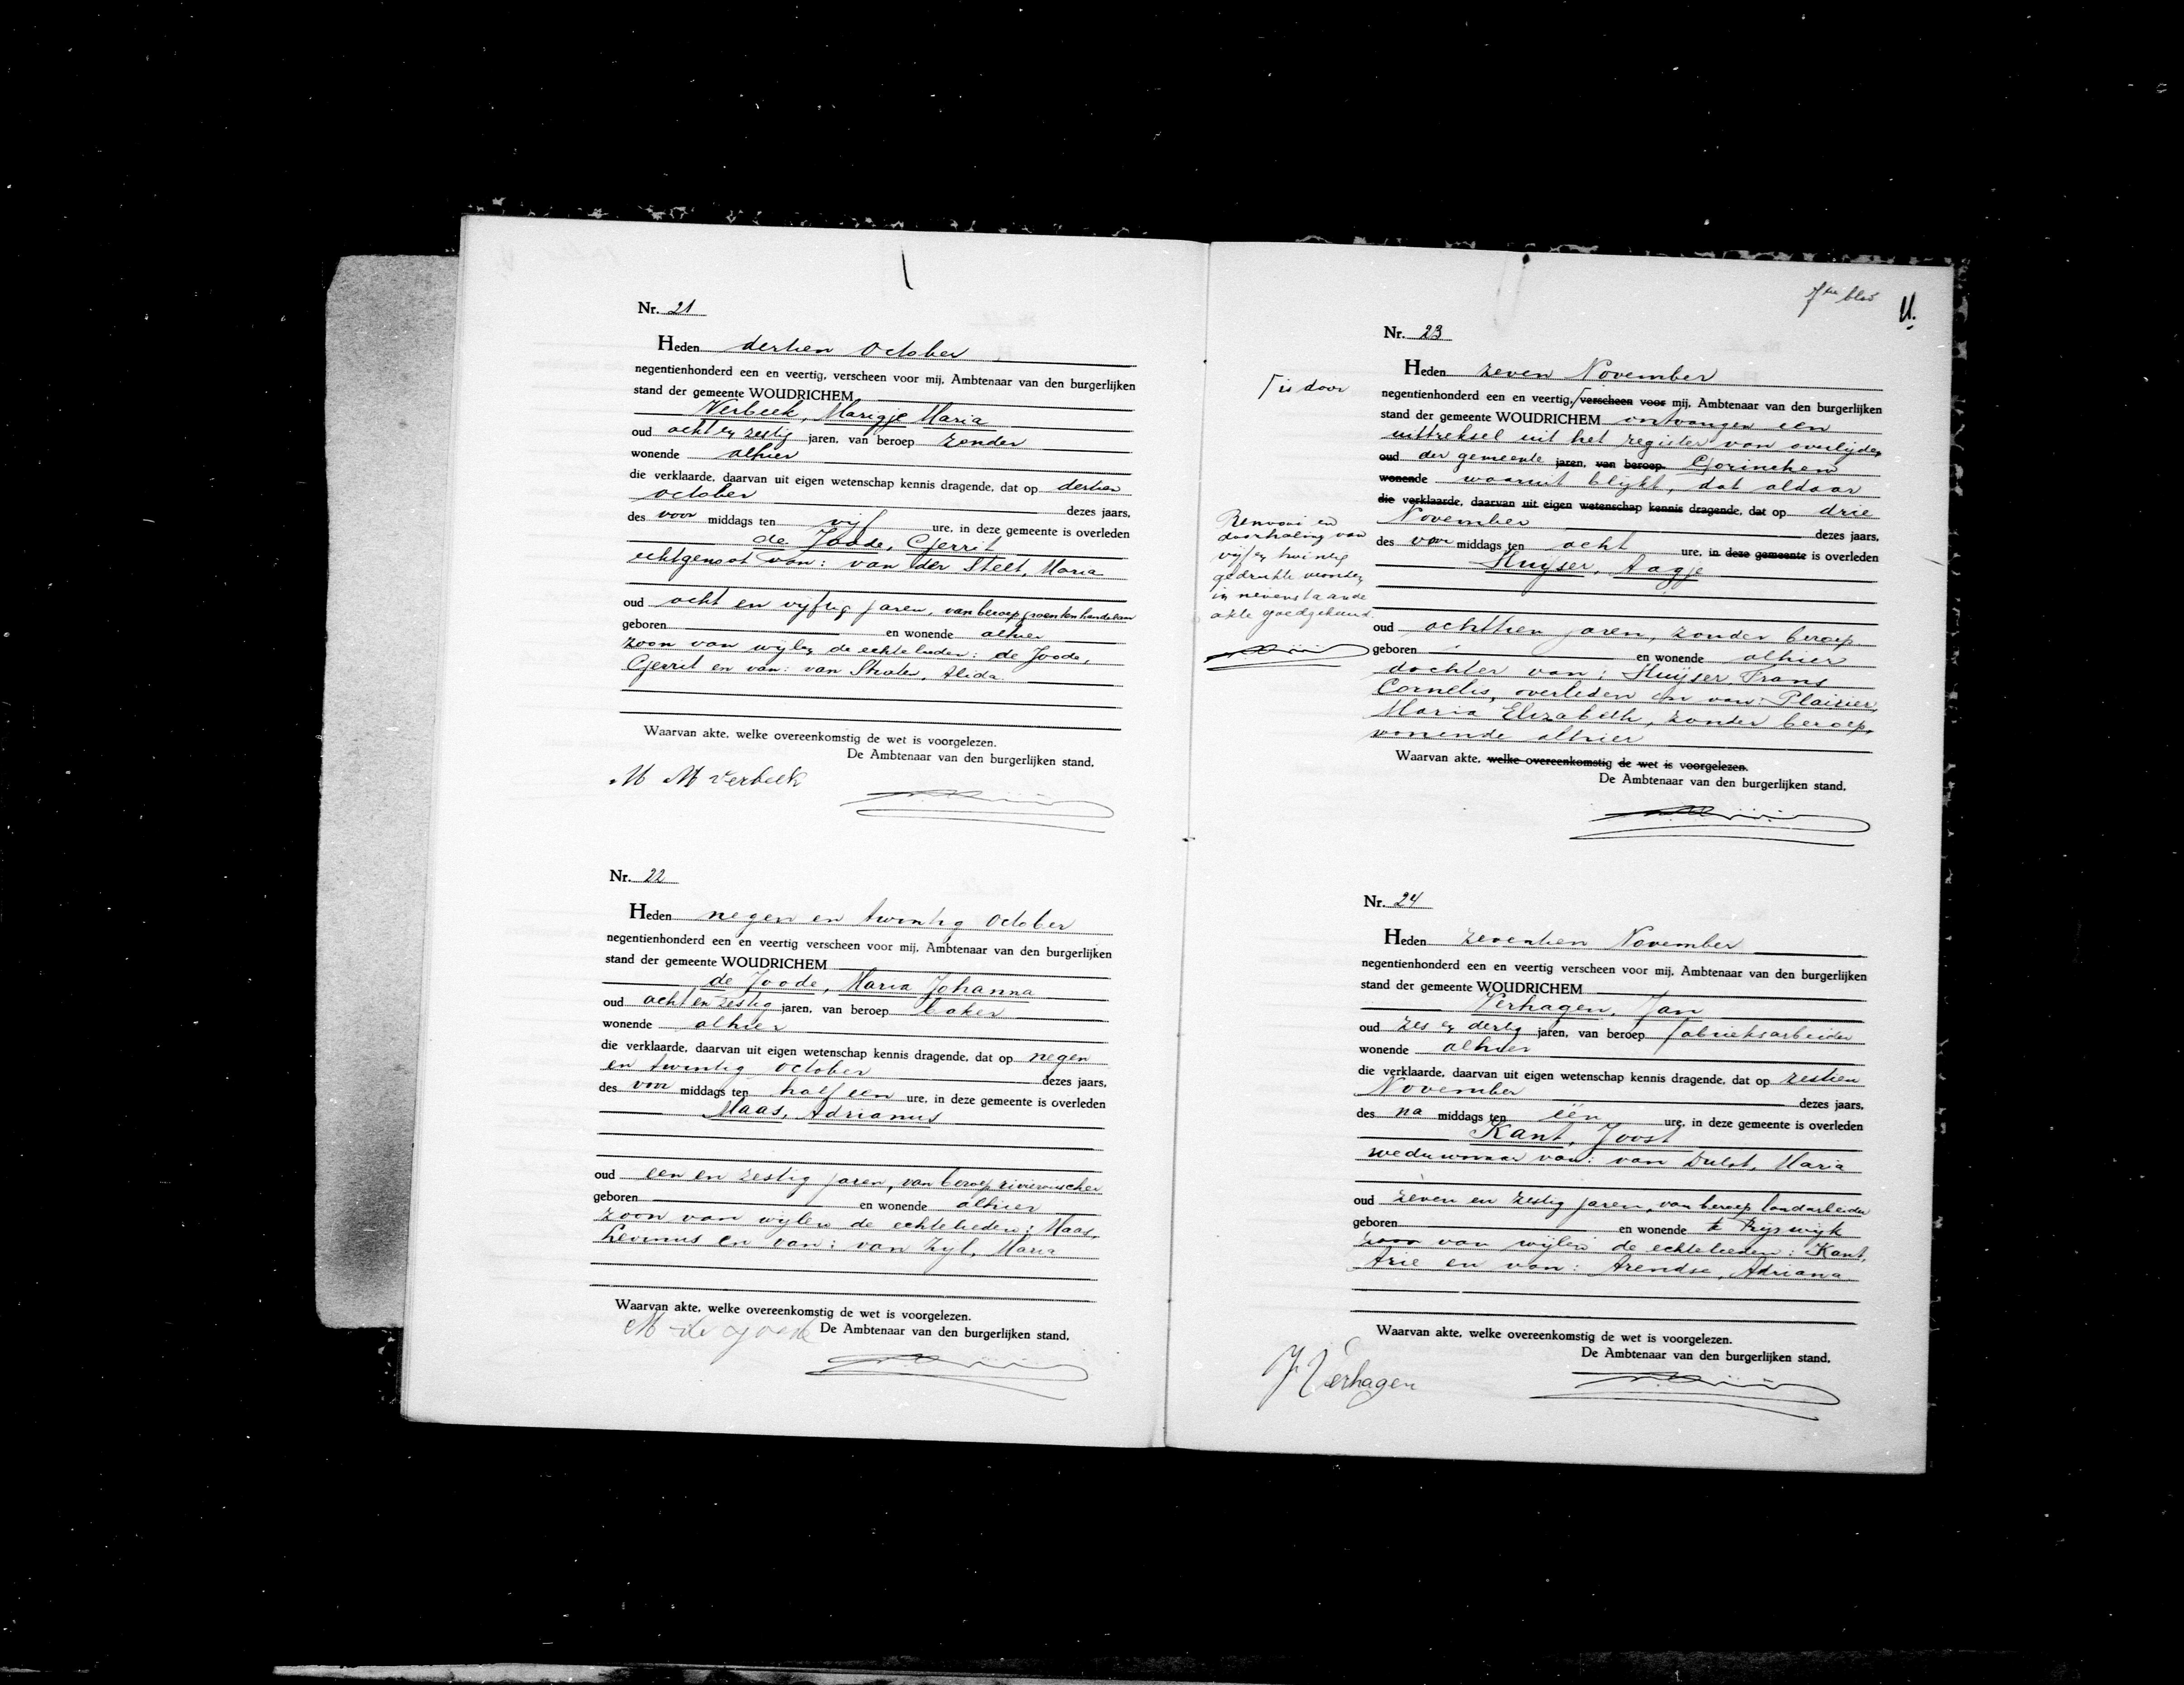 Nr. 21
Heden dertien October
negentienhonderd een en veertig, verscheen voor mij, Ambtenaar van den burgerlijken
stand der gemeente WOUDRICHEM
Verbeek, Marigje Maria
oud acht en zestig jaren, van beroep zonder
wonende alhier
die verklaarde, daarvan uit eigen wetenschap kennis dragende, dat op dertien
October dezes jaars,
des voor middags ten vijf ure, in deze gemeente is overleden
de Joode, Gerrit
echtgenoot van: van der Stelt, Maria
oud acht en vijftig jaren, van beroep groentenhandelaar
geboren en wonende alhier
zoon van wijlen de echtelieden: de Joode,
Gerrit en van: van Straten, Alida
Waarvan akte, welke overeenkomstig de wet is voorgelezen.
De Ambtenaar van den burgerlijken stand.
M M Verbeek
Nr. 22
Heden negen en twintig October
negentienhonderd een en veertig verscheen voor mij, Ambtenaar van den burgerlijken
stand der gemeente WOUDRICHEM
de Joode, Maria Johanna
oud acht en zestig jaren, van beroep baker
wonende alhier
die verklaarde, daarvan uit eigen wetenschap kennis dragende, dat op negen
en twintig October dezes jaars,
des voor middags ten half een ure, in deze gemeente is overleden
Maas, Adrianus
oud een en zestig jaren, van beroep riviervisscher
geboren en wonende alhier
zoon van wijlen de echtelieden: Maas,
Levinus en van: van Zyl, Maria
Waarvan akte, welke overeenkomstig de wet is voorgelezen.
M de Joode De Ambtenaar van den burgerlijken stand,
7de blad
11.
Nr. 23
Heden zeven November
is door
negentienhonderd een en veertig, verscheen voor mij, Ambtenaar van den burgerlijken
stand der gemeente WOUDRICHEM ontvangen een
uittreksel uit het register van overlijden
oud der gemeente jaren, van beroep Gorinchem
wonende waaruit blijkt, dat aldaar
die verklaarde, daarvan uit eigen wetenschap kennis dragende, dat op drie
November dezes jaars,
des voor middags ten acht ure, in deze gemeente is overleden
Sluijser, Aagje
Renvooi en
doorhaling van
vijf en twintig
gedrukte woorden
in nevenstaande
akte goedgekeurd.
oud achttien jaren, zonder beroep
geboren en wonende alhier
dochter van: Sluijser, Frans
Cornelis, overleden en van: Plaisier,
Maria Elizabeth, zonder beroep,
wonende alhier
Waarvan akte, welke overeenkomstig de wet is voorgelezen.
De Ambtenaar van den burgerlijken stand.
Nr. 24
Heden zeventien November
negentienhonderd een en veertig verscheen voor mij, Ambtenaar van den burgerlijken
stand der gemeente WOUDRICHEM
Verhagen, Jan
oud zes en dertig jaren, van beroep fabrieksarbeider
wonende alhier
die verklaarde, daarvan uit eigen wetenschap kennis dragende, dat op zestien
November dezes jaars,
des na middags ten één ure, in deze gemeente is overleden
Kant, Joost
weduwnaar van: van Dulst, Maria
oud zeven en zestig jaren, van beroep landarbeider
geboren en wonende te Rijswijk
zoon van wijlen de echtelieden: Kant,
Arie en van: Arendse, Adriana
Waarvan akte, welke overeenkomstig de wet is voorgelezen.
De Ambtenaar van den burgerlijken stand.
J Verhagen